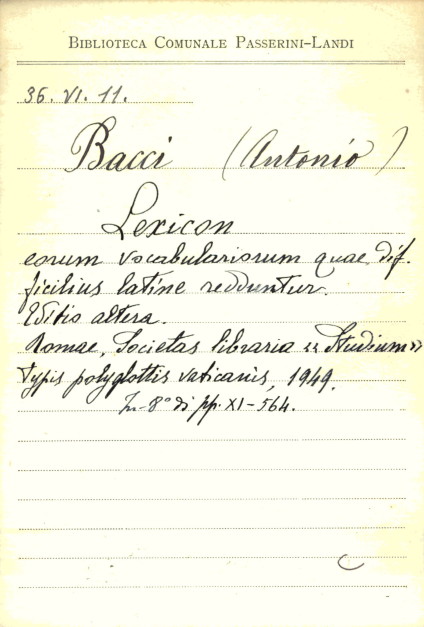 BIBLIOTECA COMUNALE PASSERINI-LANDI
36. VI. 11.
Bacci (Antonio)
Lexicon
eorum vocabulariorum quae dif-
ficilius latine redduntur.
Editio altera.
Romae, Societas libraria "Studium"
typis polyglottis vaticanis, 1949.
In-8° di pp. XI-564.